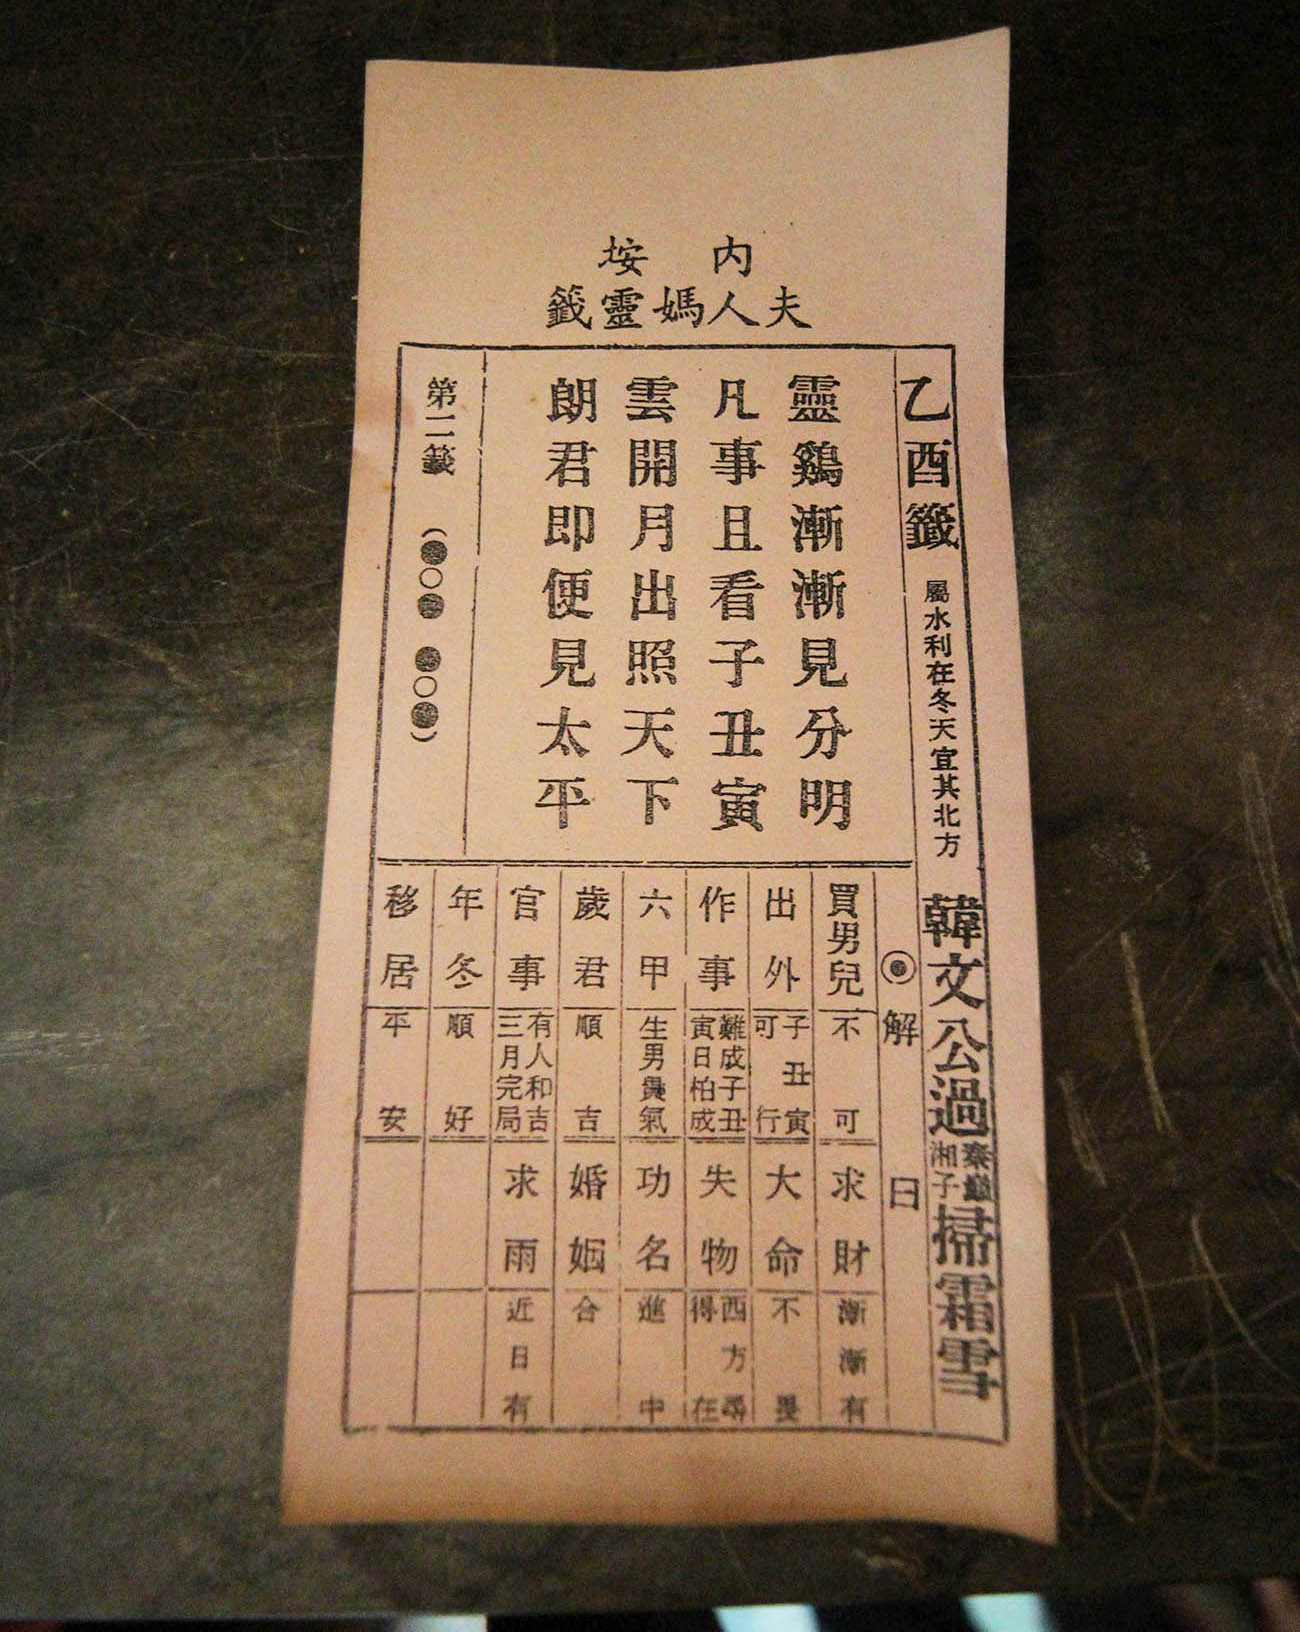 內垵
夫人媽靈籤
乙酉籤 屬水利在冬天宜其北方 韓文公過秦嶺湘子掃霜雪
靈鷄漸漸見分明
凡事且看子丑寅
雲開月出照天下
朗君即便見太平
第二籤 (●○● ●○●)
◉解曰
買男兒 不可
求財 漸漸有
出外 子丑寅可行
大命 不畏
作事 難成子丑寅日柏成
失物 西方尋得在
六甲 生男貴氣
功名 進中
歲君 順吉
婚姻 合
官事 有人和吉三月完局
求雨 近日有
年冬 順好
移居 平安